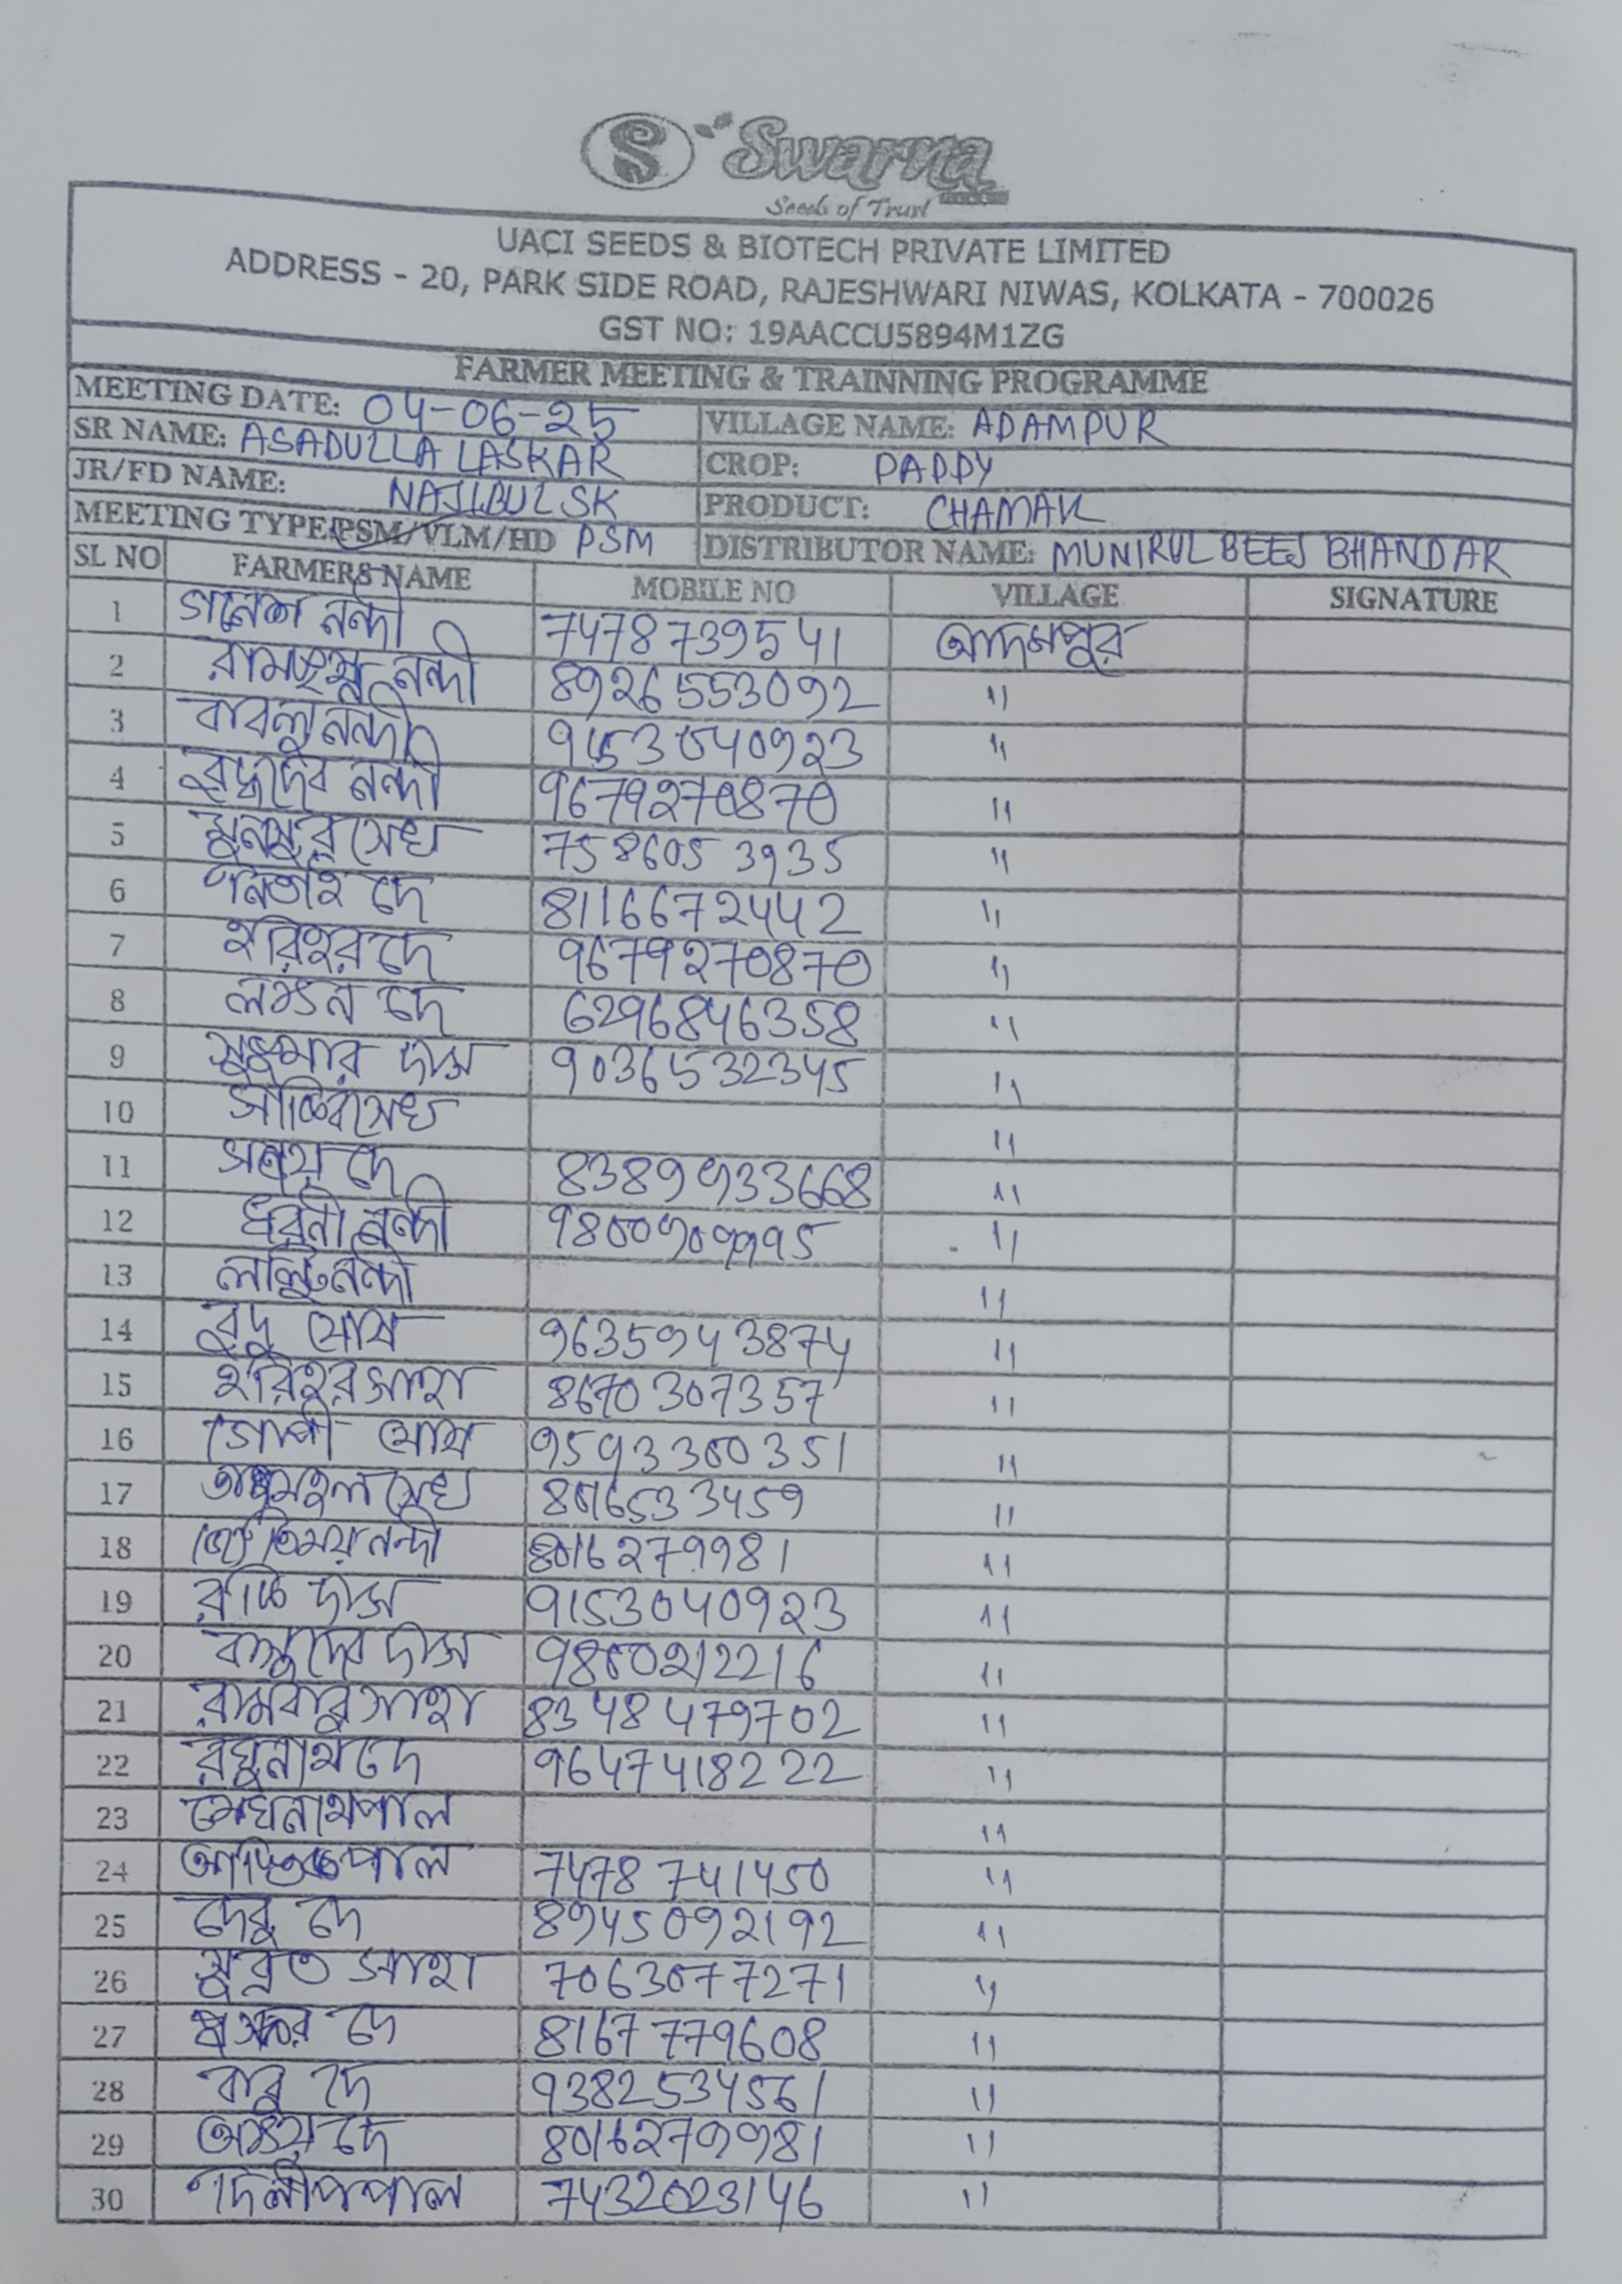 S Swarna
Seeds of Trust
UACI SEEDS & BIOTECH PRIVATE LIMITED
ADDRESS - 20, PARK SIDE ROAD, RAJESHWARI NIWAS, KOLKATA - 700026
GST NO: 19AACCU5894M1ZG
FARMER MEETING & TRAINNING PROGRAMME
MEETING DATE: 04-06-25 VILLAGE NAME: ADAMPUR
SR NAME: ASADULLA LASKAR CROP: PADDY
JR/FD NAME: NAJIBUL SK PRODUCT: CHAMAK
MEETING TYPE(PSM/VLM/HD PSM DISTRIBUTOR NAME: MUNIRUL BEEJ BHANDAR
SL NO FARMERS NAME MOBILE NO VILLAGE SIGNATURE
1 গনেশ নন্দী 7478739541 আদমপুর
2 রামকৃষ্ণ নন্দী 8926553092 "
3 বাবলু নন্দী 9153040923 "
4 বুদ্ধদেব নন্দী 9679270870 "
5 মুনসুর সেখ 7586053935 "
6 নিতাই দে 8116672442 "
7 হরিহর দে 9679270870 "
8 লক্ষন দে 6296846358 "
9 সুকুমার দাস 9036532345 "
10 সেখ "
11 সঞ্জয় দে 8389933668 "
12 ধরনী নন্দী "
13 লাল্টু নন্দী "
14 বুদু ঘোষ 9635943874 "
15 হরিহর সাহা 8670307357 "
16 গোপী ঘোষ 9593300351 "
17 সেখ 8016533459 "
18 নন্দী 8016279981 "
19 দাস 9153040923 "
20 বাসুদেব দাস 9800212216 "
21 রামবাবু সাহা 8348479702 "
22 রঘুনাথ দে 9647418222 "
23 মেঘনাথ পাল "
24 পাল 7478741450 "
25 দেবু দে 8945092192 "
26 সুব্রত সাহা 7063077271 "
27 দে 8167779608 "
28 বাবু দে 9382534561 "
29 অক্ষয় দে 8016279981 "
30 দিলীপ পাল 7432023146 "